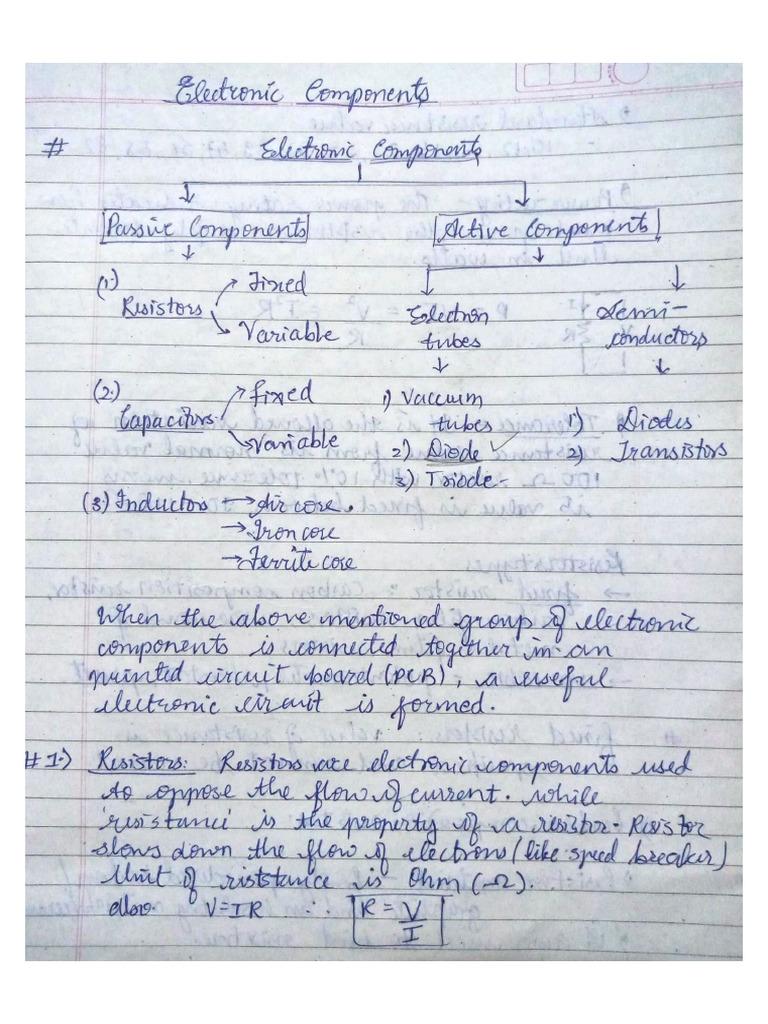 Electronic Components
# Electronic Components
Passive Components Active Components
(1.) Resistors → Fixed
→ Variable
Electron tubes
Semi-conductors
(2.) Capacitors → Fixed
→ Variable
1) Vaccum tubes
2) Diode
3) Triode
1) Diodes
2) Transistors
(3.) Inductors → Air core.
→ Iron core
→ Ferrite core
When the above mentioned group of electronic
components is connected together in an
printed circuit board (PCB), a useful
electronic circuit is formed.
#1.) Resistors: Resistors are electronic components used
to oppose the flow of current. while
'resistance' is the property of a resistor. Resistor
slows down the flow of electrons (like speed breaker)
Unit of riststance is Ohm (Ω).
also V=IR ∴ R = V/I